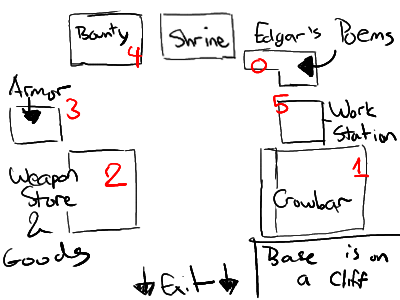 Bounty
4
Shrine
Edgar's
Poems
0
Armor
3
5
Work
Station
Weapon
Store
&
Goods
2
1
Crowbar
Exit
Base is on
a Cliff